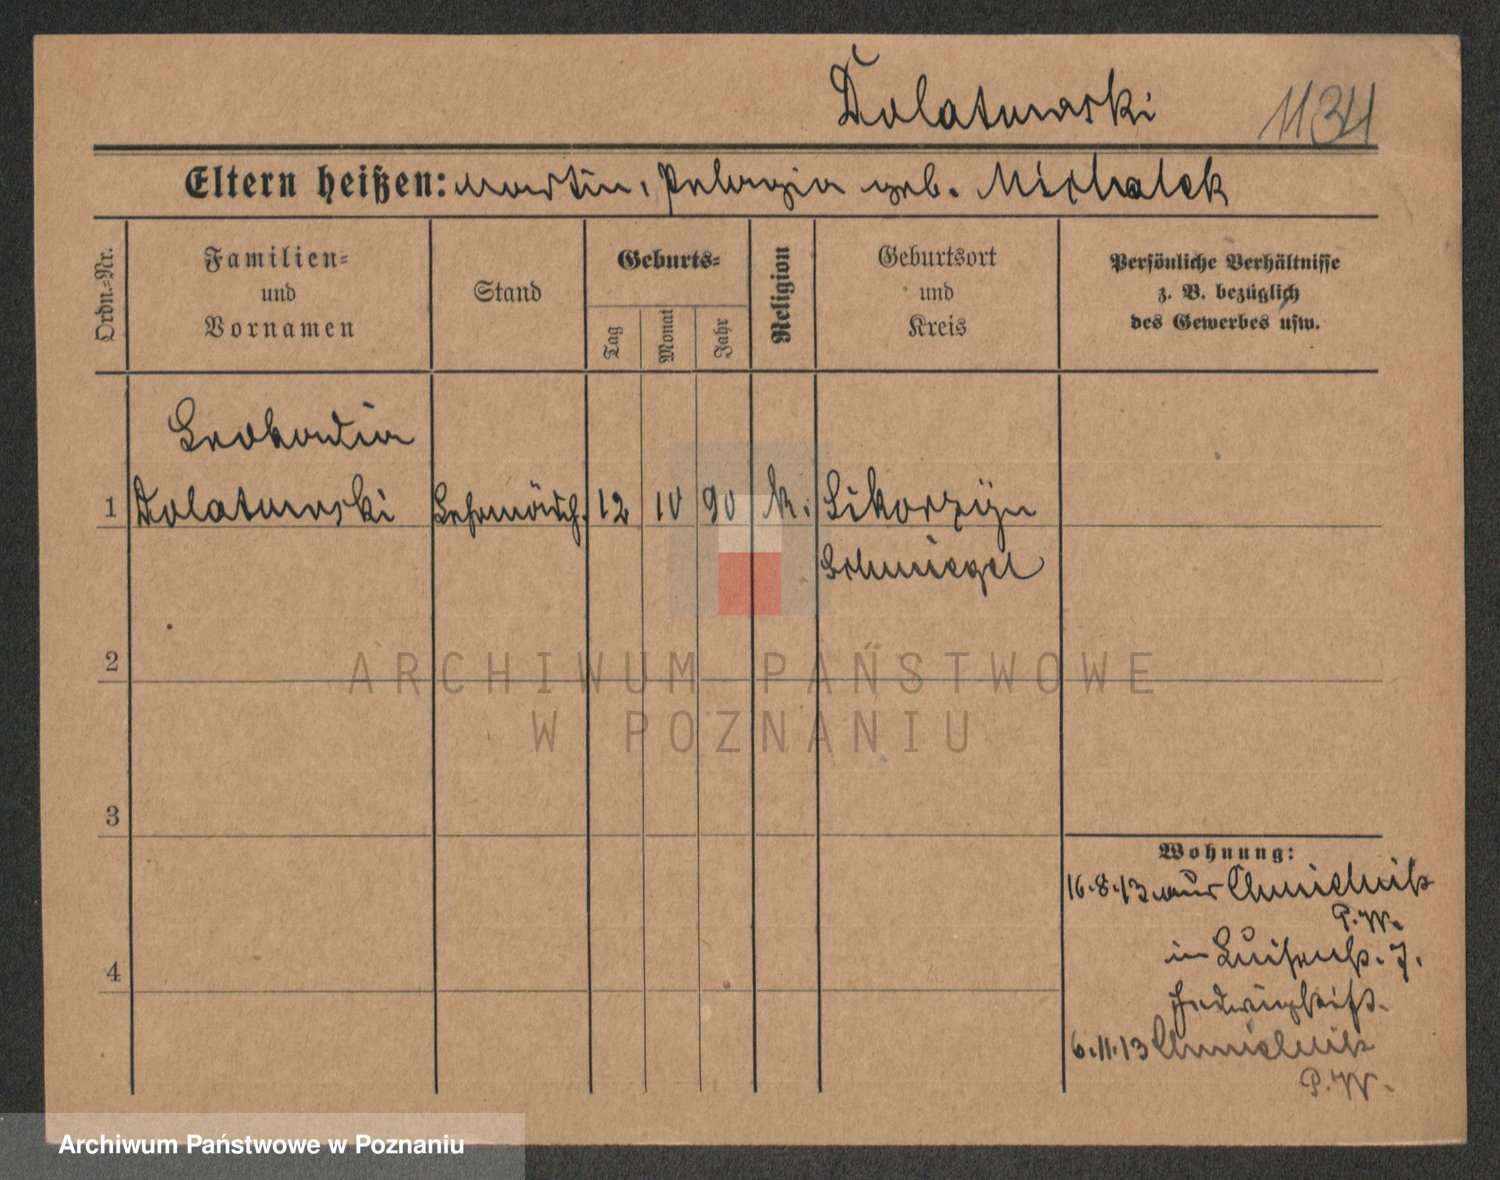 Dolatowski
1134
Eltern heißen: Martin, Pelagia geb. Michalak
Ordn.-Nr.
Familien-
und
Vornamen
Stand
Geburts-
Tag
Monat
Jahr
Religion
Geburtsort
und
Kreis
Persönliche Verhältnisse
z. B. bezüglich
des Gewerbes usw.
Leokadia
1 Dolatowski Lehrmädch. 12 10 90 k. Sikorzyn
Schmiegel
2
ARCHIWUM PAŃSTWOWE
W POZNANIU
3
Wohnung:
16.8.13 aus Chmielnik
P.W.
in Luisenstr. 7.
4
Hedwigstift.
6.11.13 Chmielnik
P.W.
Archiwum Państwowe w Poznaniu